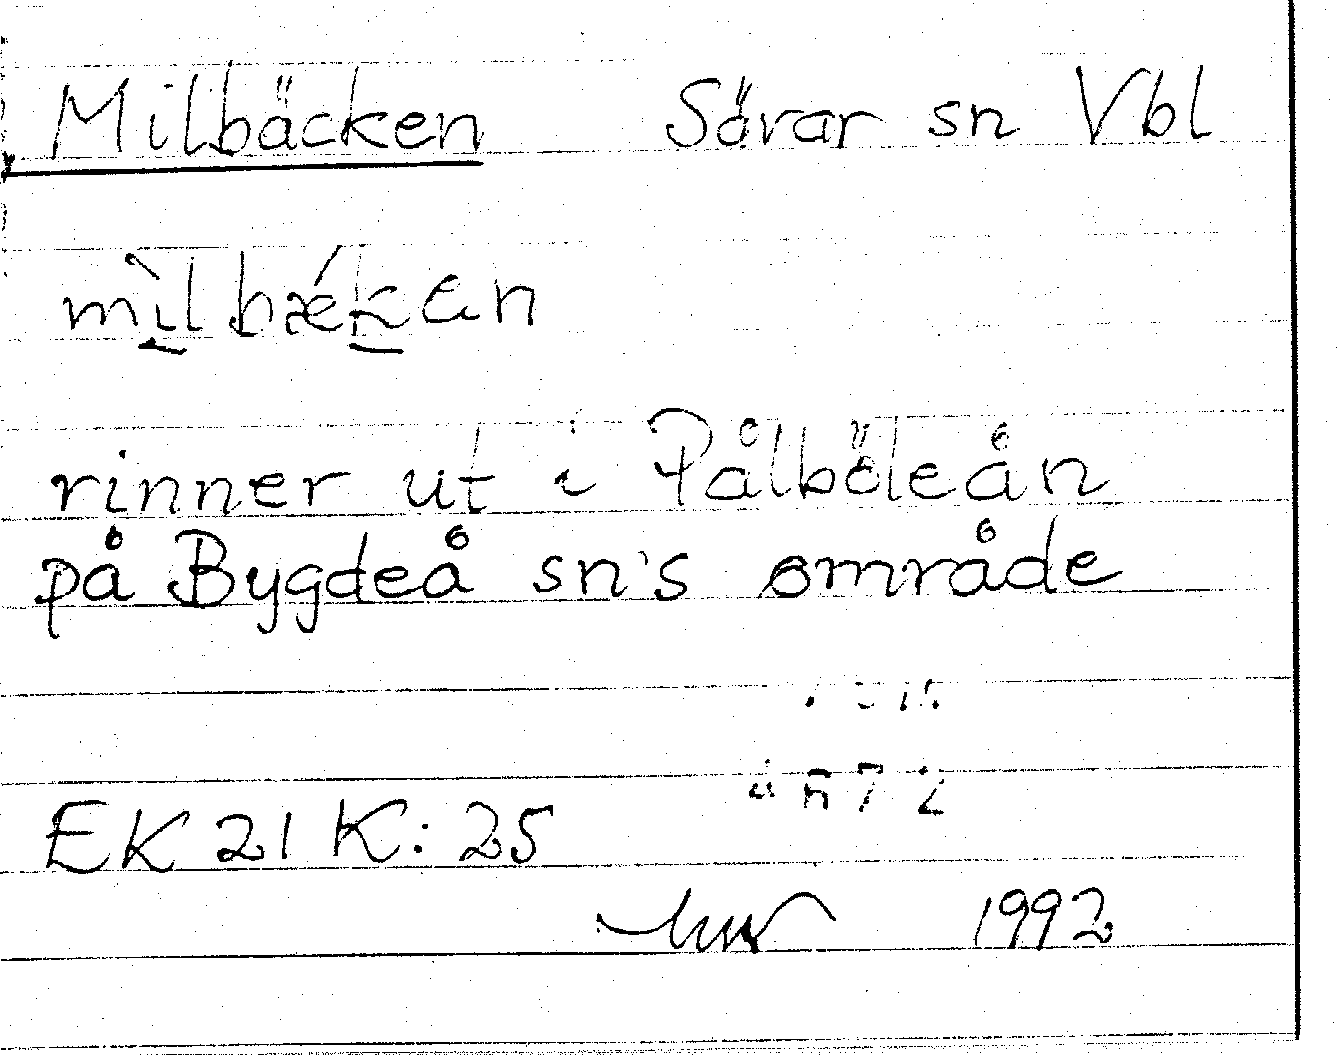 Milbäcken Sävar sn Vbl
mı̀lbǽkɐn
rinner ut i Pålböleån
på Bygdeå sn's område
EK 21 K: 25
1992